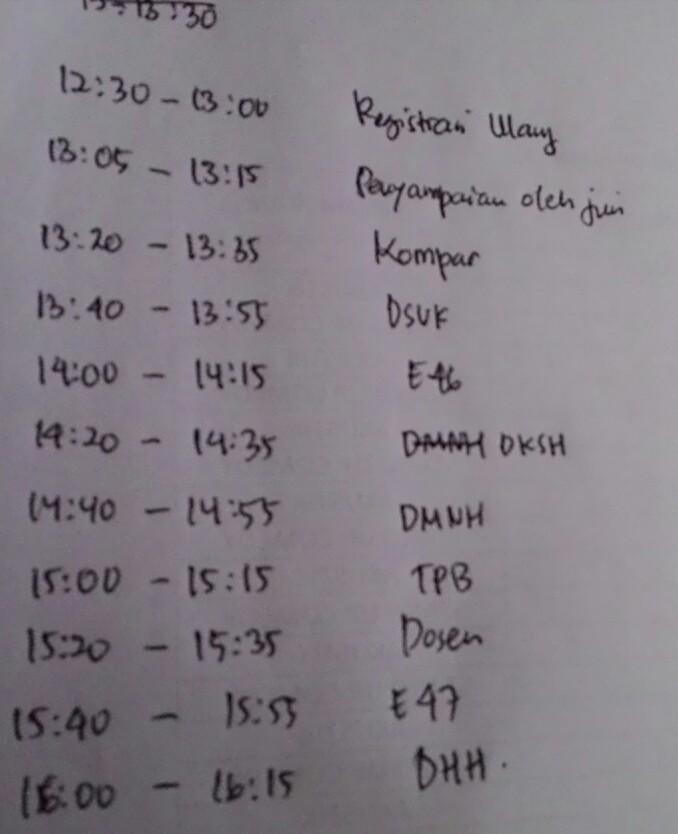 13:30
12:30 - 13:00 Registrasi Ulang
13:05 - 13:15 Penyampaian oleh juri
13:20 - 13:35 Kompar
13:40 - 13:55 DSVK
14:00 - 14:15 E46
14:20 - 14:35 DMNH DKSH
14:40 - 14:55 DMNH
15:00 - 15:15 TPB
15:20 - 15:35 Dosen
15:40 - 15:55 E47
16:00 - 16:15 DHH.